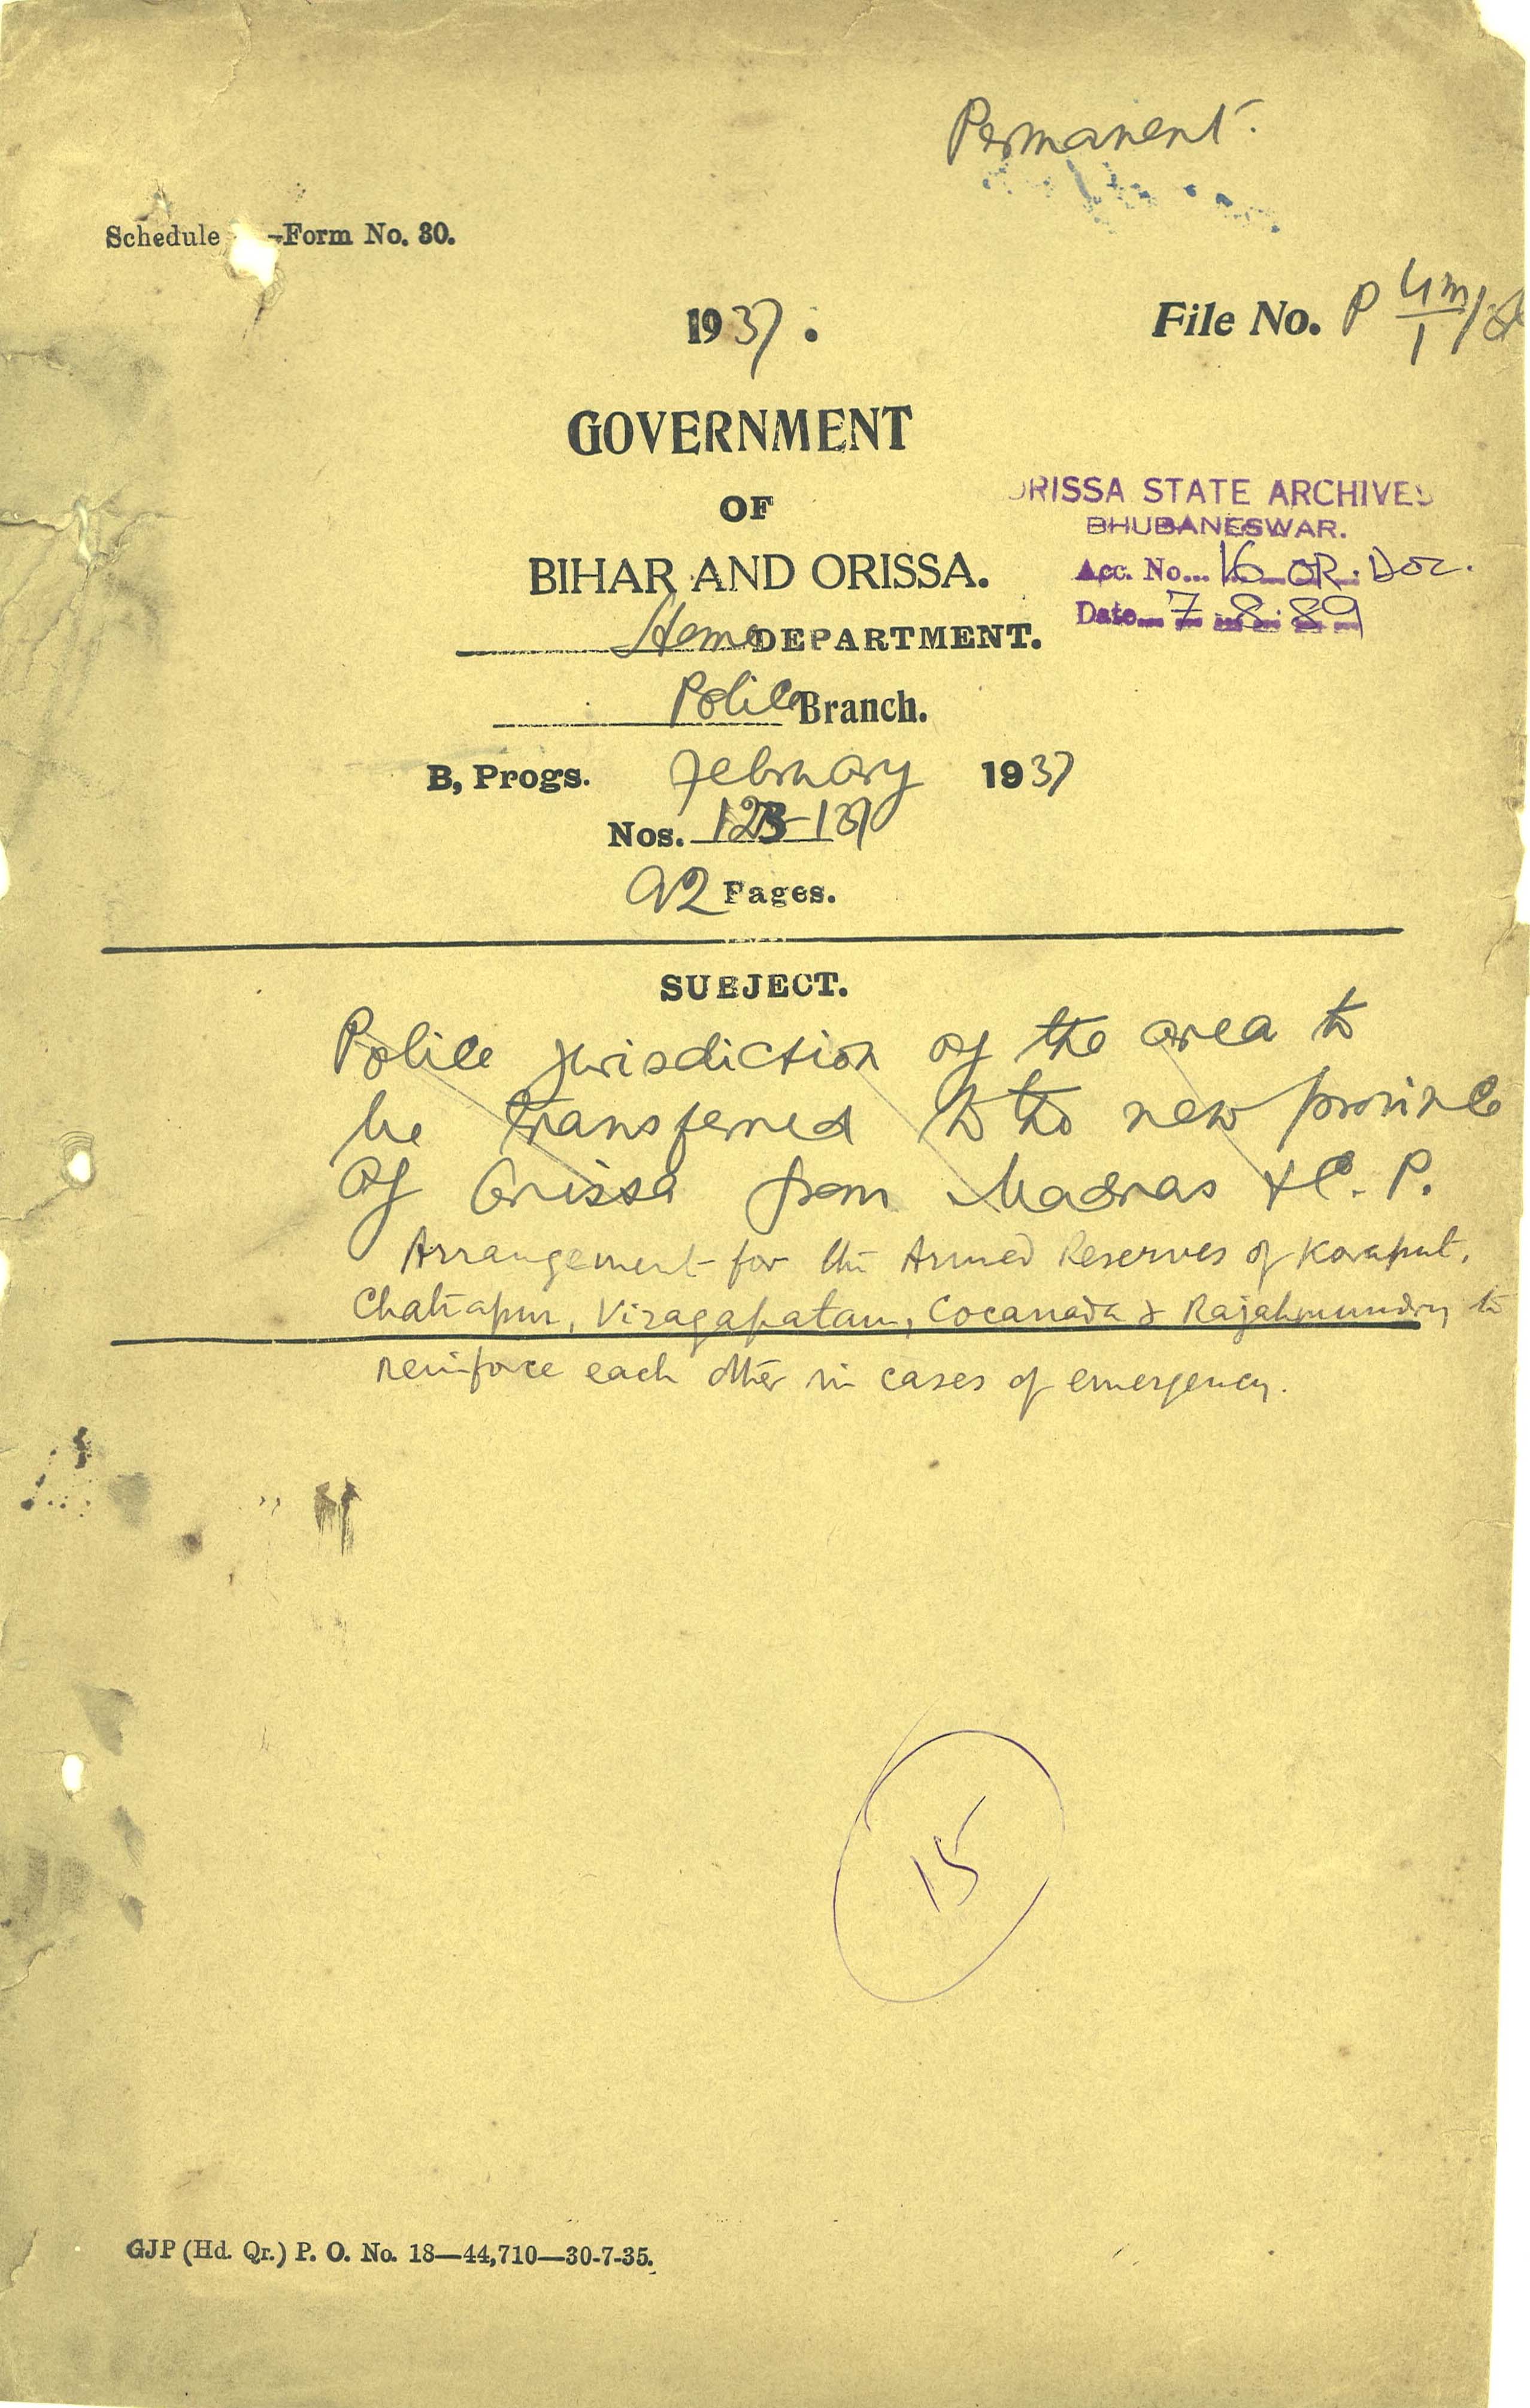 Permanent.
Schedule -Form No. 30.
1937.
File No. P 4m/1
GOVERNMENT
OF
BIHAR AND ORISSA.
ORISSA STATE ARCHIVES
BHUBANESWAR.
Acc. No... 16 OR. Doc.
Date 7.8.89
Home DEPARTMENT.
Police Branch.
B, Progs. February 1937
Nos. 123-137
92 Pages.
SUBJECT.
Police jurisdiction of the area to
be transferred to the new province
of Orissa from Madras & C. P.
Arrangement for the Armed Reserves of Koraput,
Chatrapur, Vizagapatam, Cocanada & Rajahmundry to
reinforce each other in cases of emergency.
15
GJP (Hd. Qr.) P. O. No. 18—44,710—30-7-35.